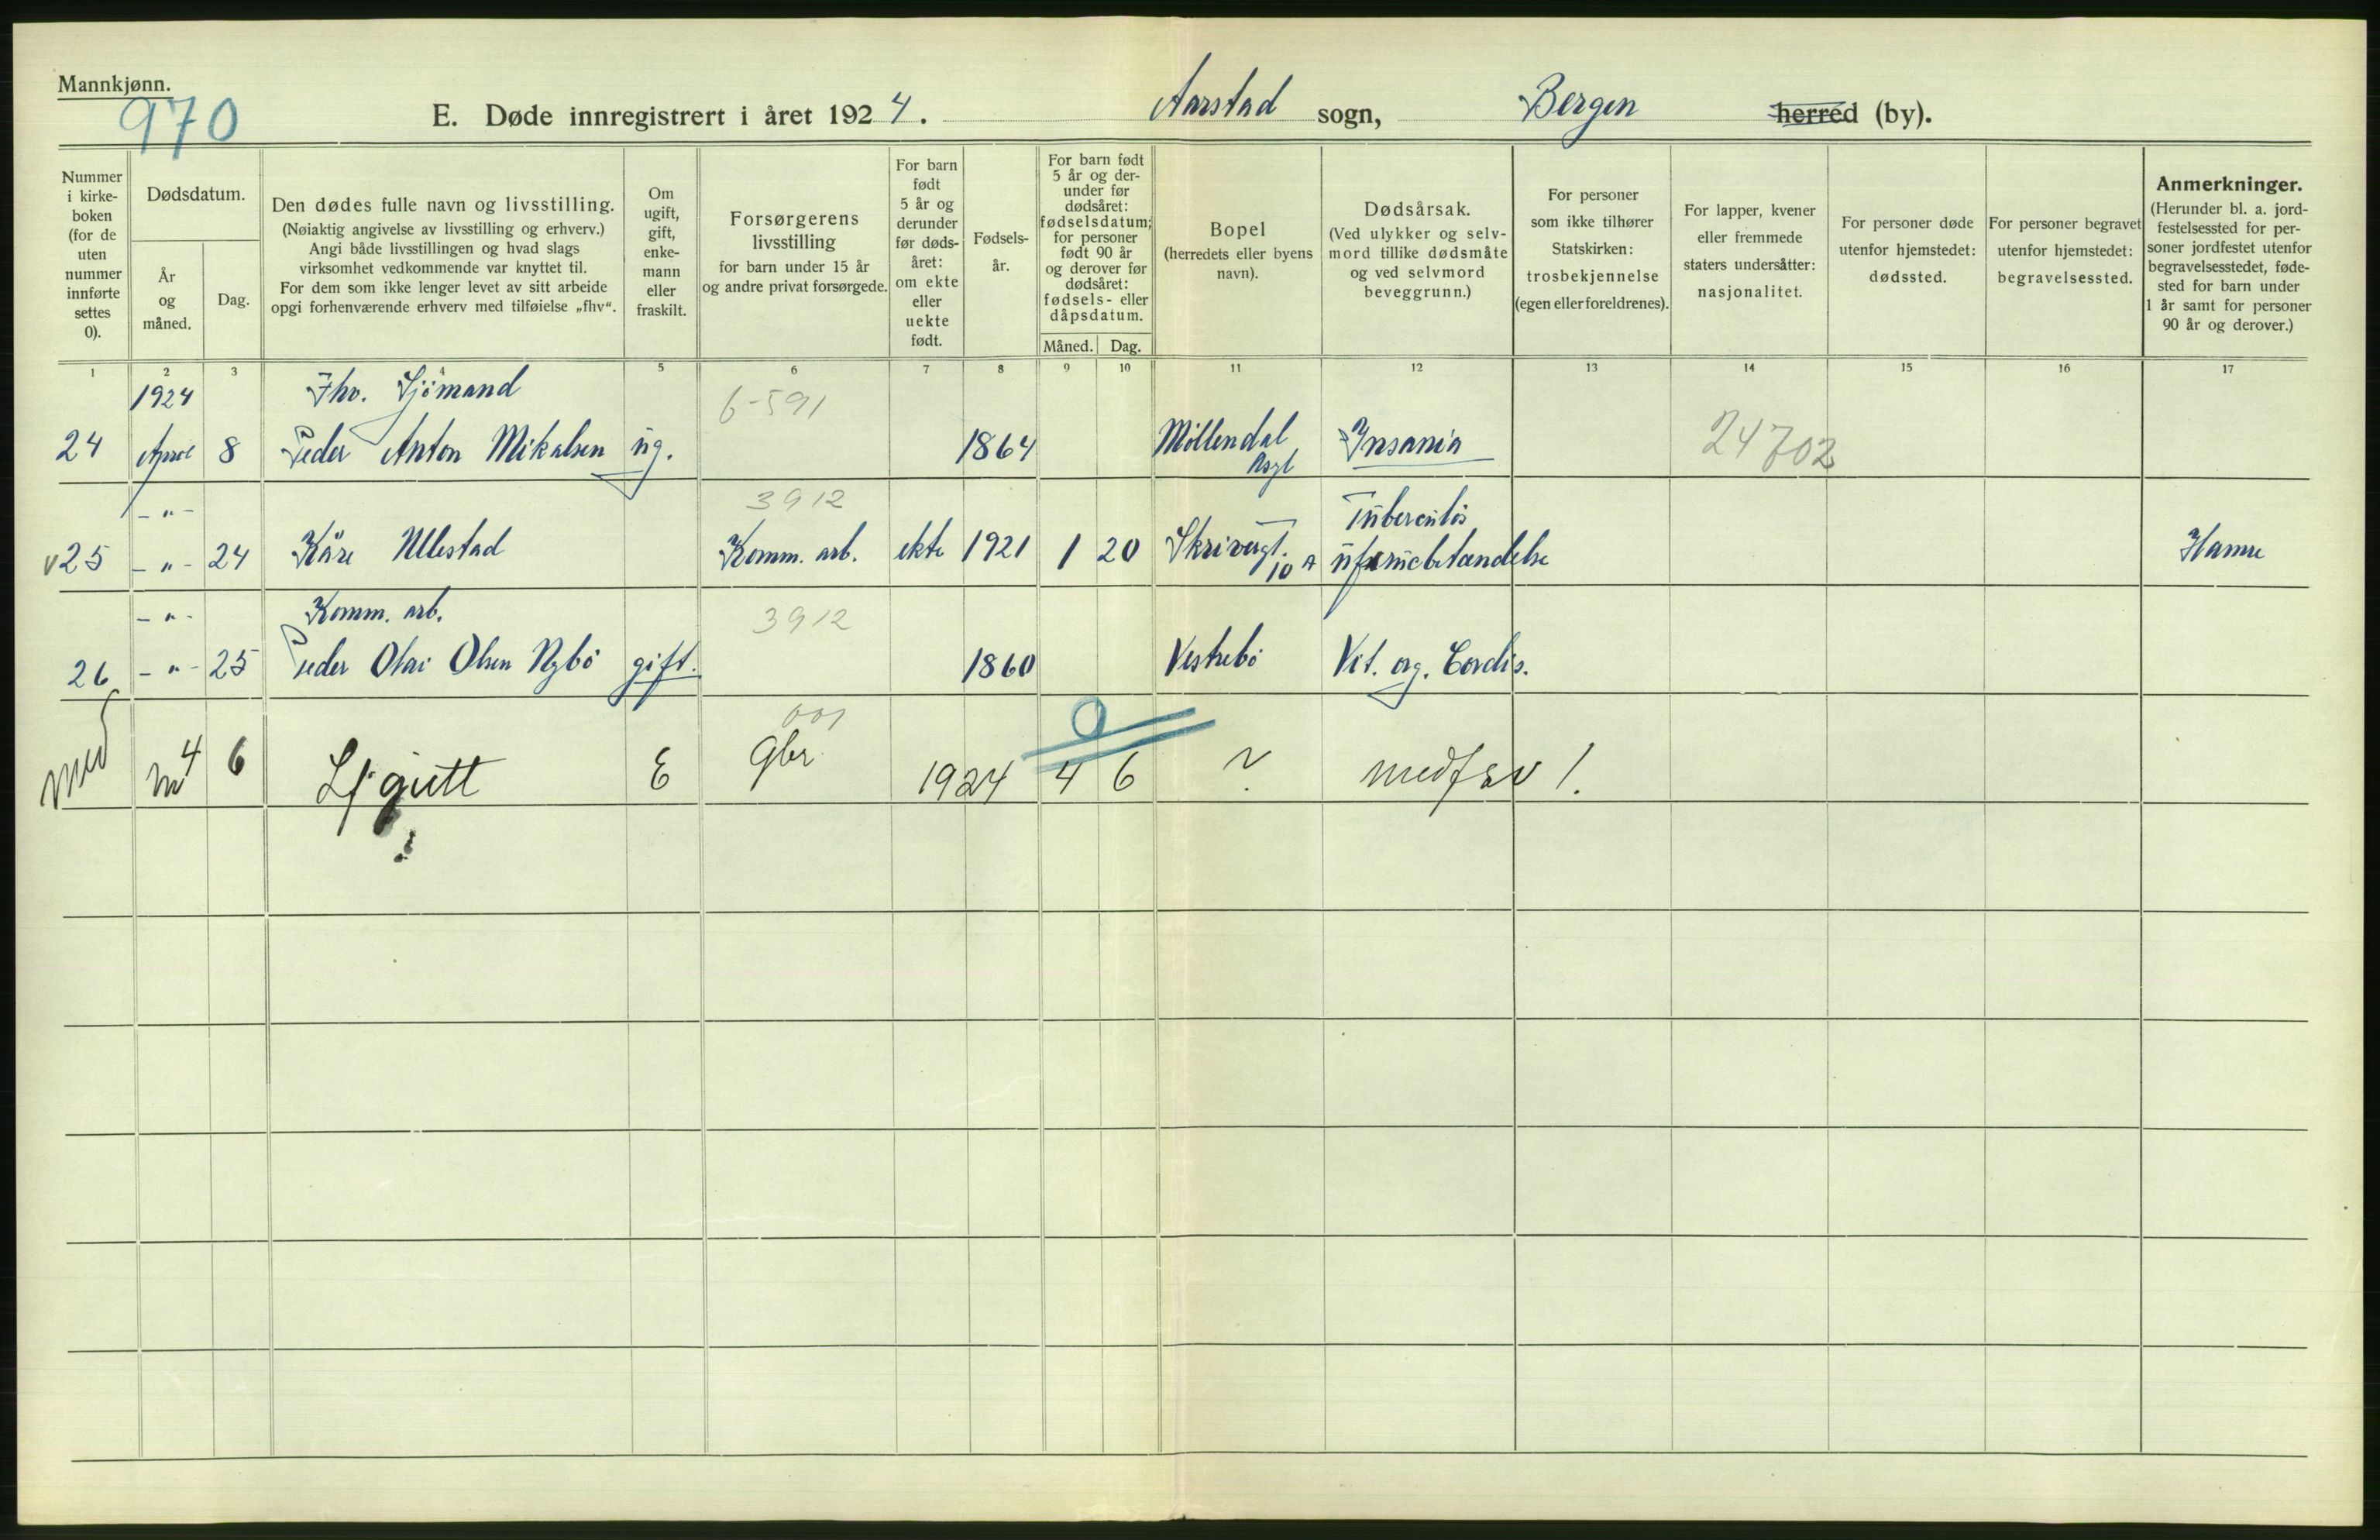 Mannkjønn.
970
E. Døde innregistrert i året 1924. Aarstad sogn, Bergen herred (by).
Nummer
i kirke-
boken
(for de
uten
nummer
innførte
settes
0).
Dødsdatum.
År
og
måned.
Dag.
Den dødes fulle navn og livsstilling.
(Nøiaktig angivelse av livsstilling og erhverv.)
Angi både livsstillingen og hvad slags
virksomhet vedkommende var knyttet til.
For dem som ikke lenger levet av sitt arbeide
opgi forhenværende erhverv med tilføielse „fhv“.
Om
ugift,
gift,
enke-
mann
eller
fraskilt.
Forsørgerens
livsstilling
for barn under 15 år
og andre privat forsørgede.
For barn
født
5 år og
derunder
før døds-
året:
om ekte
eller
uekte
født.
Fødsels-
år.
For barn født
5 år og der-
under før
dødsåret:
fødselsdatum;
for personer
født 90 år
og derover før
dødsåret:
fødsels- eller
dåpsdatum.
Måned. Dag.
Bopel
(herredets eller byens
navn).
Dødsårsak.
(Ved ulykker og selv-
mord tillike dødsmåte
og ved selvmord
beveggrunn.)
For personer
som ikke tilhører
Statskirken:
trosbekjennelse
(egen eller foreldrenes).
For lapper, kvener
eller fremmede
staters undersåtter:
nasjonalitet.
For personer døde
utenfor hjemstedet:
dødssted.
For personer begravet
utenfor hjemstedet:
begravelsessted.
Anmerkninger.
(Herunder bl. a. jord-
festelsessted for per-
soner jordfestet utenfor
begravelsesstedet, føde-
sted for barn under
1 år samt for personer
90 år og derover.)
1 2 3 4 5 6 7 8 9 10 11 12 13 14 15 16 17
1924 Fhv. Sjömand 6-591
24 April 8 Peder Anton Mikalsen ug. 1864 Möllendal Asyl Insania 24702
- " - 3912 Tuberculös
v25 - " - 24 Kåre Ullestad Komm. arb. ekte 1921 1 20 Skrivergt. 10 A Hamre
- " - Komm. arb. 3912
26 - " - 25 Peder Olai Olsen Nybö gift. 1860 Vestrebö Vit. org. Cordis.
001
0
4 6 Lf gutt E gbr. 1924 4 6 ? medfsv 1.